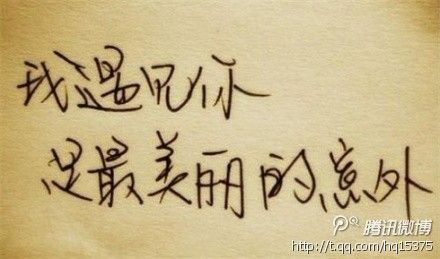 我遇见你
是最美丽的意外
腾讯微博
http://t.qq.com/hq15375